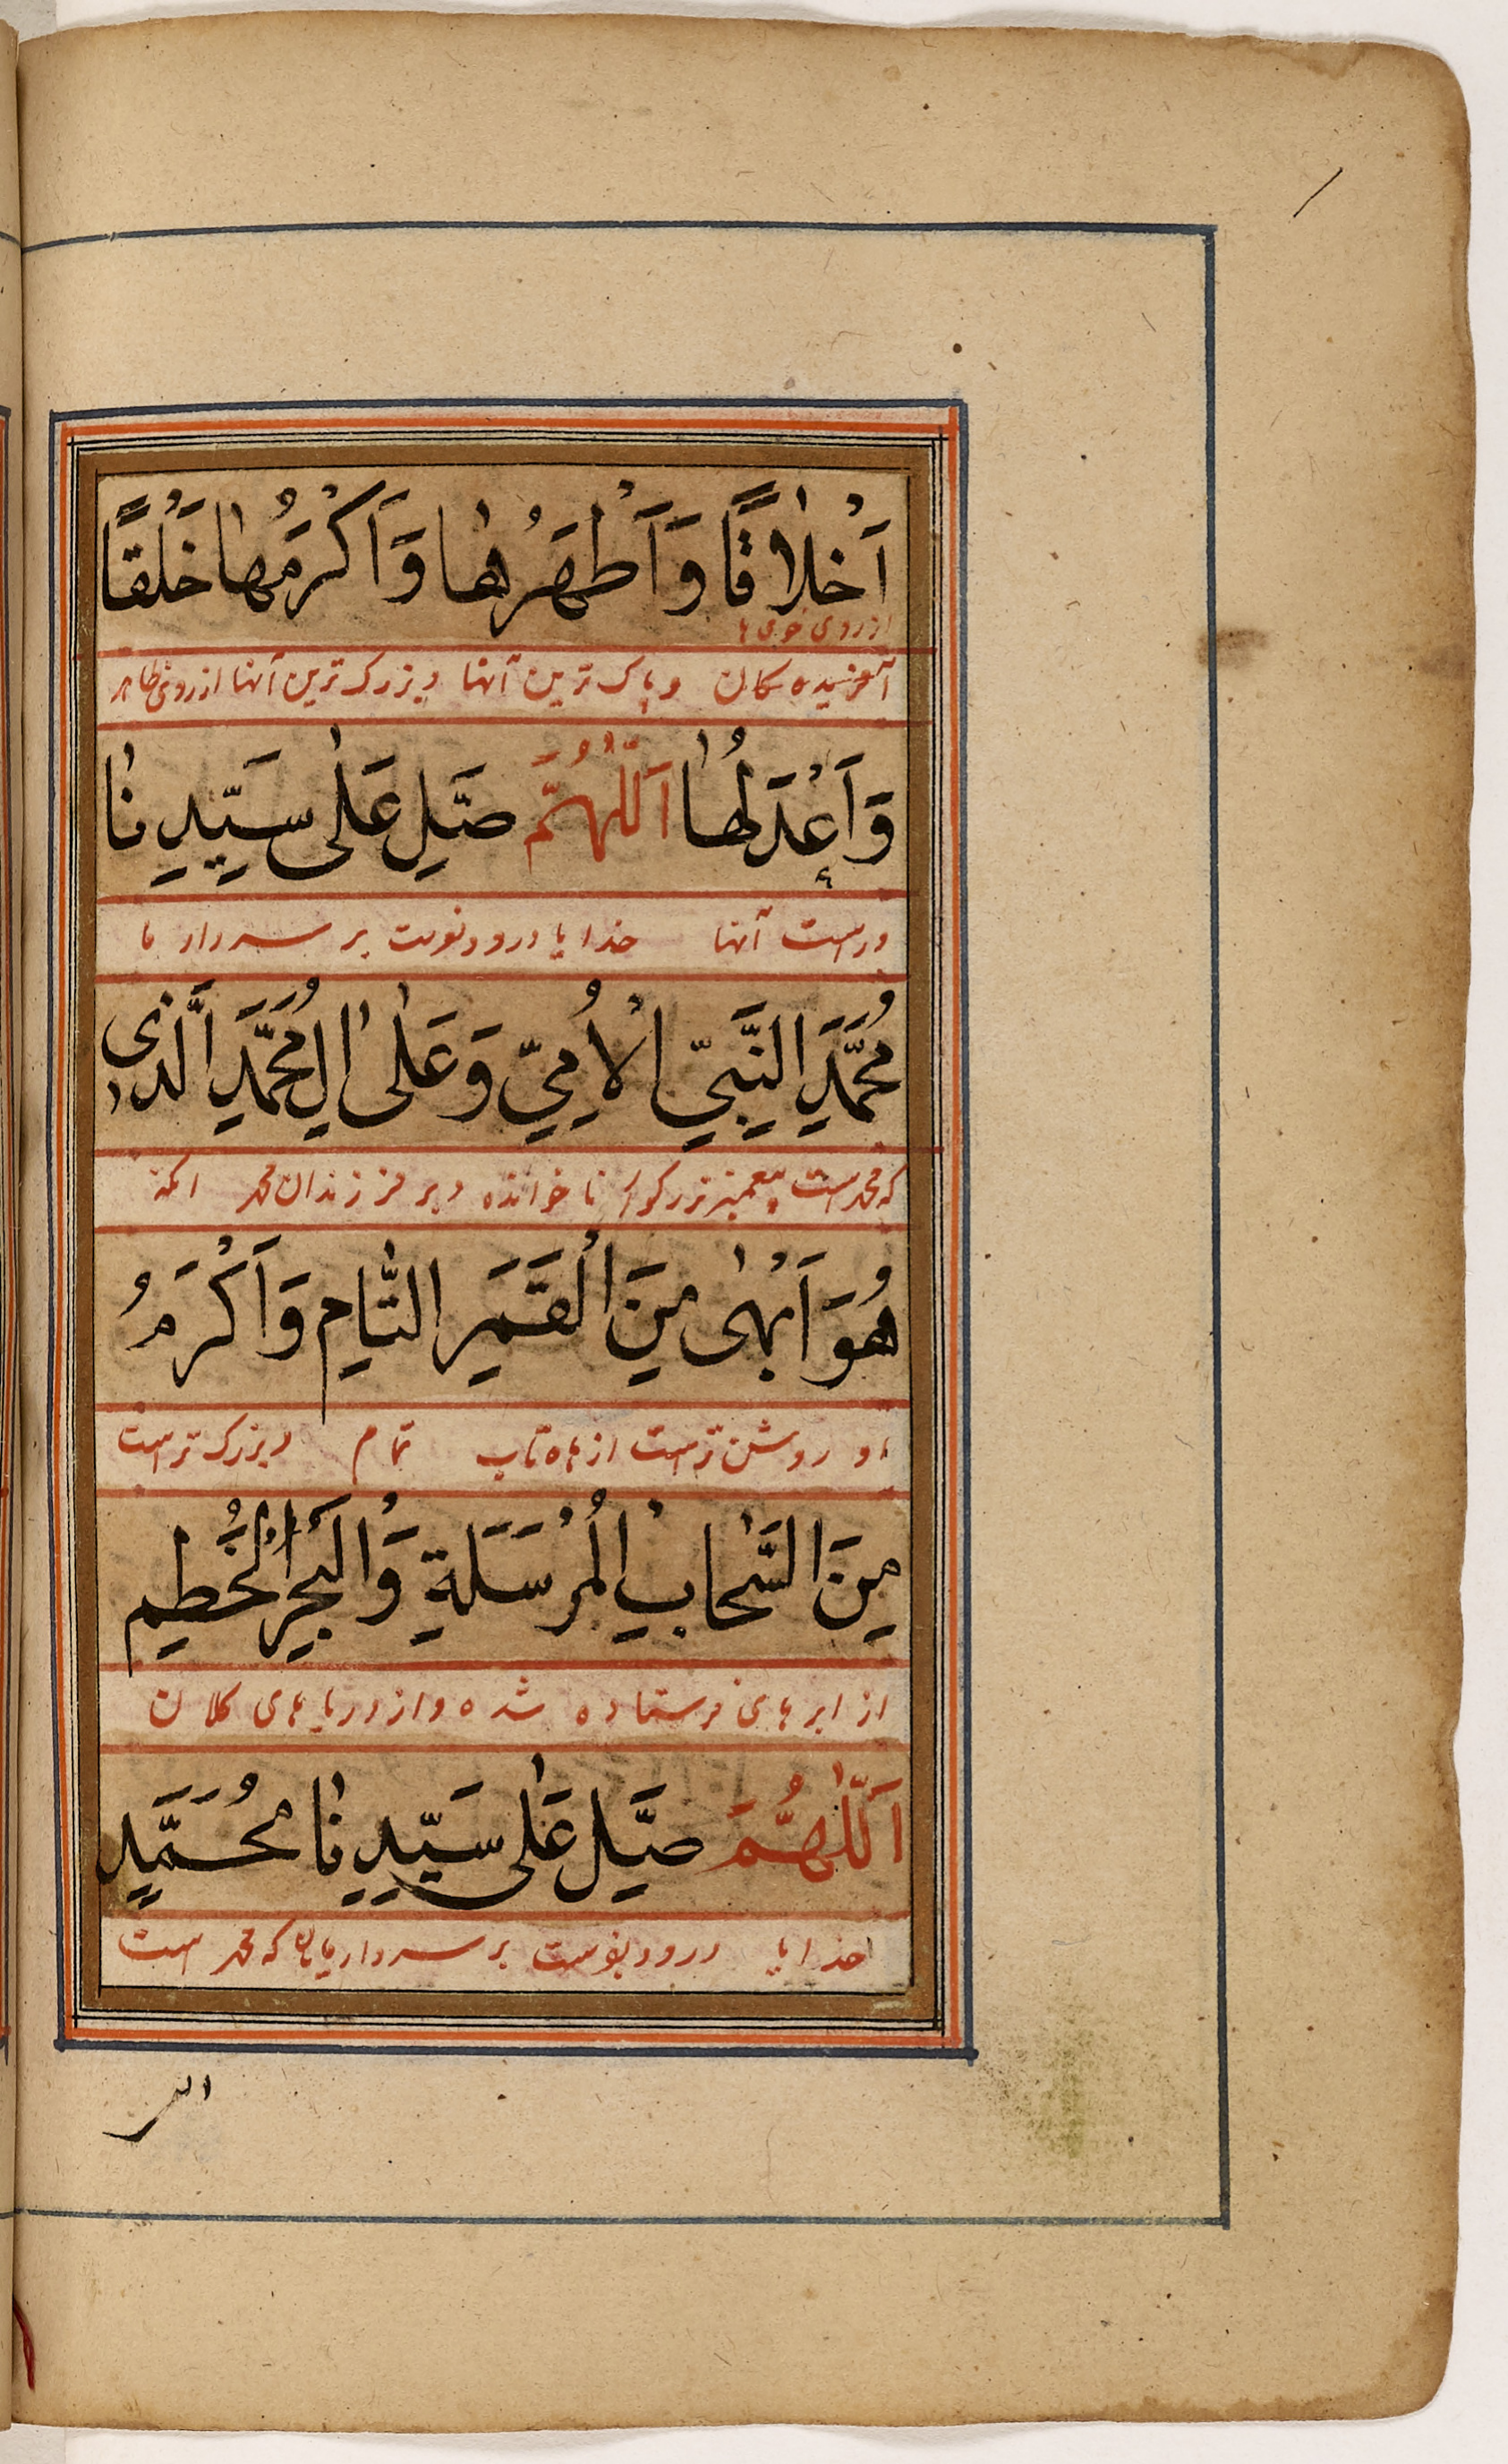 اَخْلاٰقًا وَاَطْهَرُهٰا وَاَكْرَمُهٰا خَلْقًا
از روی خوی ها
آفریده کان وپاک ترین آنها وبزرک ترین آنها از روی ظاهر
وَاَعْدَلُهٰا اَللّٰهُمَّ صَلِّ عَلٰى سَيِّدِنٰا
وراست آنها خدایا درود نوست بر سردار ما
مُحَمَّدِ النَّبِيِّ الْاُمِيِّ وَعَلٰى اٰلِ مُحَمَّدِ الَّذِى
که محمد است پیغمبر بزرکوار ناخوانده وبر فرزندان محمد انکه
هُوَ اَبْهٰى مِنَ الْقَمَرِ التّٰامِ وَاَكْرَمُ
او روشن تراست از ماه تاب تمام وبزرک تراست
مِنَ السَّحٰابِ الْمُرْسَلَةِ وَالْبَحْرِ الْخُطَمِ
از ابرهای فرستاده شده واز دریا های کلان
اَللّٰهُمَّ صَلِّ عَلٰى سَيِّدِنٰا مُحَمَّدٍ
خدایا درود بفوست بر سردار مایان که محمد است